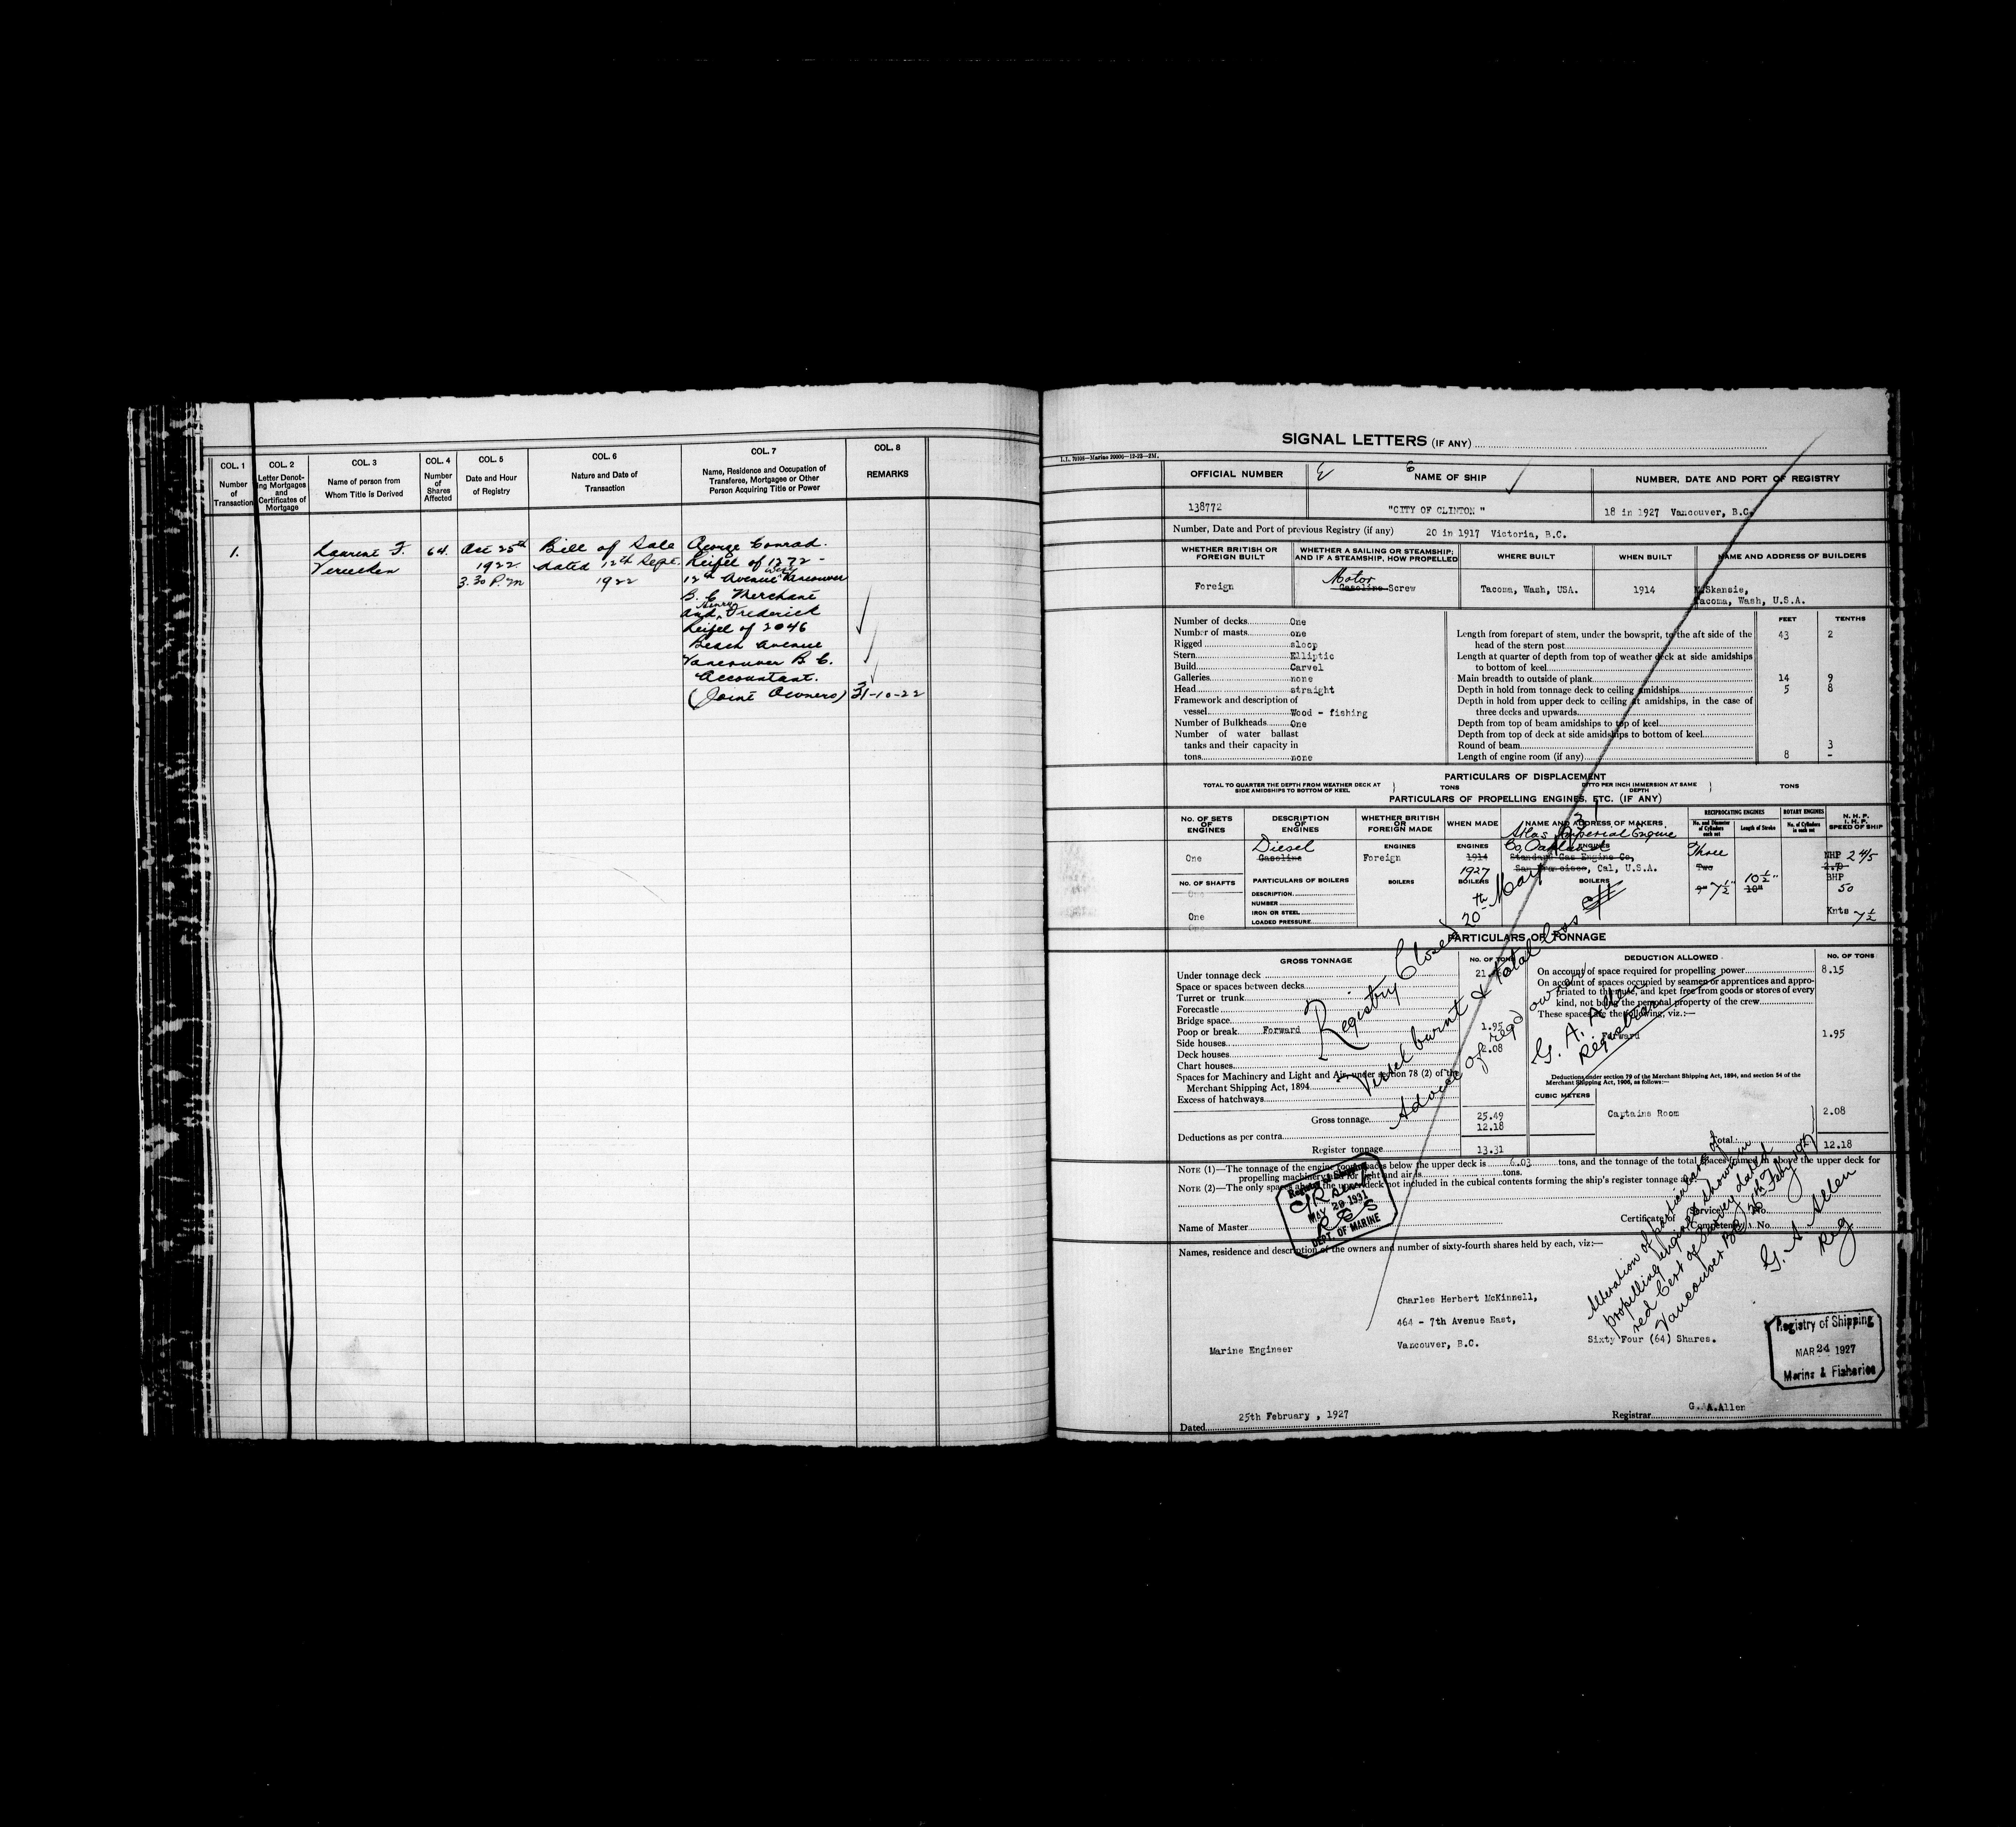 COL. 1
Number
of
Transaction
COL. 2
Letter Denot-
ing Mortgages
and
Certificates of
Mortgage
COL. 3
Name of person from
Whom Title is Derived
COL. 4
Number
of
Shares
Affected
COL. 5
Date and Hour
of Registry
COL. 6
Nature and Date of
Transaction
COL. 7
Name, Residence and Occupation of
Transferee, Mortgagee or Other
Person Acquiring Title or Power
COL. 8
REMARKS
1.
Laurent F.
Vereecken
64.
Oct 25th
1922
3.30 P.m
Bill of Sale
dated 12th Sept.
1922
George Conrad.
Reifel of 1272 -
12th Avenue West Vancouver
B. C. Merchant
and Henry Frederick
Reifel of 2046
Beach Avenue
Vancouver B. C.
Accountant.
(Joint Owners)
31-10-22
SIGNAL LETTERS (IF ANY)
OFFICIAL NUMBER
NAME OF SHIP
NUMBER, DATE AND PORT OF REGISTRY
138772
"CITY OF CLINTON "
18 in 1927 Vancouver, B.C.
Number, Date and Port of previous Registry (if any) 20 in 1917 Victoria, B.C.
WHETHER BRITISH OR
FOREIGN BUILT
WHETHER A SAILING OR STEAMSHIP;
AND IF A STEAMSHIP, HOW PROPELLED
WHERE BUILT
WHEN BUILT
NAME AND ADDRESS OF BUILDERS
Foreign
Motor
Gasoline Screw
Tacoma, Wash, USA.
1914
Skansie,
Tacoma, Wash, U.S.A.
Number of decks One
Number of masts one
Rigged sloop
Stern Elliptic
Build Carvel
Galleries none
Head straight
Framework and description of
vessel Wood - fishing
Number of Bulkheads One
Number of water ballast
tanks and their capacity in
tons none
FEET TENTHS
Length from forepart of stem, under the bowsprit, to the aft side of the
head of the stern post 43 2
Length at quarter of depth from top of weather deck at side amidships
to bottom of keel
Main breadth to outside of plank 14 9
Depth in hold from tonnage deck to ceiling amidships 5 8
Depth in hold from upper deck to ceiling at amidships, in the case of
three decks and upwards
Depth from top of beam amidships to top of keel
Depth from top of deck at side amidships to bottom of keel
Round of beam 3
Length of engine room (if any) 8 -
PARTICULARS OF DISPLACEMENT
TOTAL TO QUARTER THE DEPTH FROM WEATHER DECK AT
SIDE AMIDSHIPS TO BOTTOM OF KEEL
TONS
DITTO PER INCH IMMERSION AT SAME
DEPTH
TONS
PARTICULARS OF PROPELLING ENGINES, ETC. (IF ANY)
NO. OF SETS
OF
ENGINES
DESCRIPTION
OF
ENGINES
WHETHER BRITISH
OR
FOREIGN MADE
WHEN MADE
NAME AND ADDRESS OF MAKERS
RECIPROCATING ENGINES
No. and Diameter
of Cylinders
each set
Length of Stroke
ROTARY ENGINES
No. of Cylinders
in each set
N. H. P.
I. H. P.
SPEED OF SHIP
One
Diesel
Gasoline
ENGINES
Foreign
ENGINES
1914
1927
Atlas Imperial Engine
Co, Oakland
ENGINES
Standard Gas Engine Co,
San Francisco, Cal, U.S.A.
Three
Two
9" 7½"
10½"
10"
NHP 24/5
BHP
50
Knts 7½
NO. OF SHAFTS
One
PARTICULARS OF BOILERS
DESCRIPTION
NUMBER
IRON OR STEEL
LOADED PRESSURE
BOILERS
BOILERS
BOILERS
PARTICULARS OF TONNAGE
GROSS TONNAGE
NO. OF TONS
Under tonnage deck
Space or spaces between decks
Turret or trunk
Forecastle
Bridge space
Poop or break Forward 1.95
Side houses
Deck houses 2.08
Chart houses
Spaces for Machinery and Light and Air, under section 78 (2) of the
Merchant Shipping Act, 1894
Excess of hatchways
Gross tonnage 25.49
Deductions as per contra 12.18
Register tonnage 13.31
DEDUCTION ALLOWED
NO. OF TONS
On account of space required for propelling power 8.15
On account of spaces occupied by seamen or apprentices and appro-
priated to their use, and kpet free from goods or stores of every
kind, not being the personal property of the crew
These spaces are the following, viz.:—
Forward 1.95
Deductions under section 79 of the Merchant Shipping Act, 1894, and section 54 of the
Merchant Shipping Act, 1906, as follows:—
CUBIC METERS
Captains Room 2.08
Total 12.18
Registry Closed 20th May 1931
Vessel burnt & total loss
Advice of reg'd owner
G. A. Allen
Registrar
NOTE (1)—The tonnage of the engine room spaces below the upper deck is 6.03 tons, and the tonnage of the total spaces framed in above the upper deck for
propelling machinery and for light and air is tons.
NOTE (2)—The only spaces above the upper deck not included in the cubical contents forming the ship's register tonnage are:
Name of Master
Certificate of Service No.
Competency No.
MAY 29 1931
DEPT. OF MARINE
Names, residence and description of the owners and number of sixty-fourth shares held by each, viz:—
Alteration of particulars of
propelling engines shown in
red Cert of Survey dated
Vancouver BC 26th Feby 1927
G. A Allen
Reg
Charles Herbert McKinnell,
464 - 7th Avenue East,
Vancouver, B.C.
Marine Engineer
Sixty Four (64) Shares.
Registry of Shipping
MAR 24 1927
Marine & Fisheries
Dated 25th February , 1927
Registrar G. A.Allen